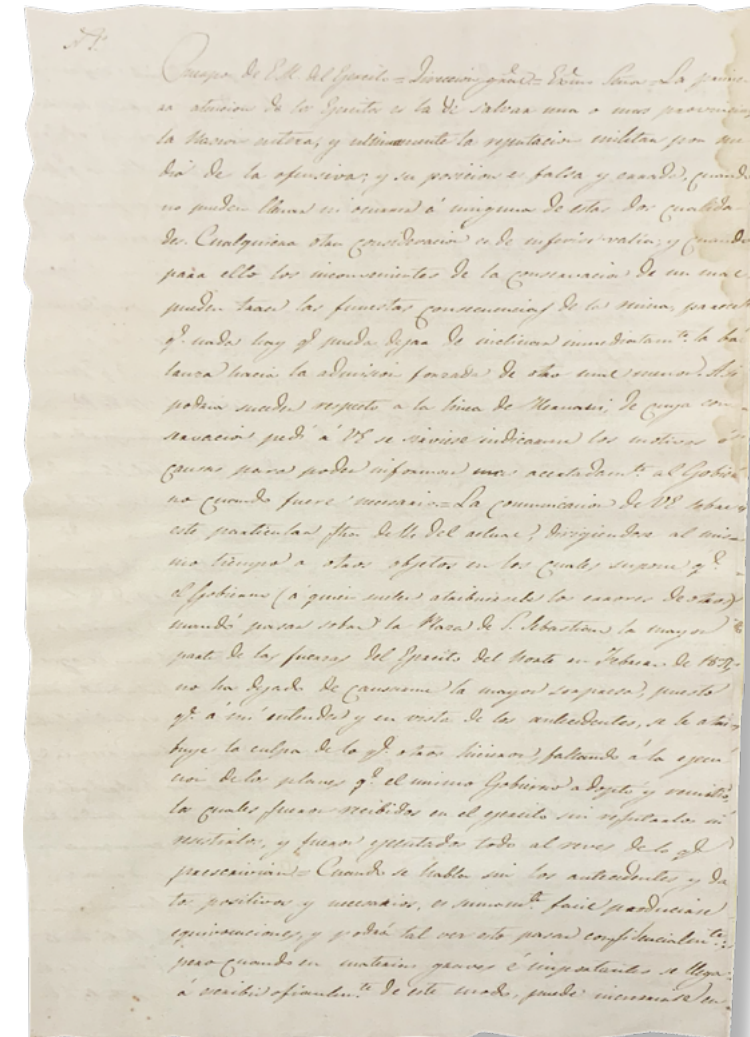 Cuerpo de E.M. del Ejercito = Direccion gral = Exmo Señor = La prime-
ra atencion de los Ejercitos es la de salvar una o mas provincias,
la Nacion entera, y ultimamente la reputacion militar por me-
dio de la ofensiva; y su posicion es falsa y errada, cuando
no pueden llenar ni ocurrir á ninguna de estas dos cualida-
des. Cualquiera otra consideracion es de inferior valia; y cuando
para ello los inconvenientes de la conservacion de un mal
pueden traer las funestas consecuencias de la ruina, parece
qe. nada hay qe. pueda dejar de inclinar inmediatamte. la ba-
lanza hacia la admision forzada de otro mal menor. Asi
podria suceder respecto a la linea de Hernani, de cuya con-
servacion pedi á VE se sirviese indicarme los motivos ó
causas para poder informar mas acertadamte. al Gobier-
no cuando fuere necesario = La comunicacion de VE sobre
este particular fha de 11 del actual, dirigiendose al mis-
mo tiempo a otros objetos en los cuales supone qe.
el Gobierno (á quien suelen atribuirsele los errores de otros)
mandó pasar sobre la Plaza de S. Sebastian la mayor
parte de las fuerzas del Ejercito del Norte en Febrero de
no ha dejado de causarme la mayor sorpresa, puesto
qe. á mi entender y en vista de los antecedentes, se le atri-
buye la culpa de lo qe. otros hicieron, faltando á la ejecu-
cion de los planes qe. el mismo Gobierno adoptó y remitió,
los cuales fueron recibidos en el ejercito sin refutarlos ni
resistirlos, y fueron ejecutados todo al reves de lo qe.
prescrivian = Cuando se habla sin los antecedentes y da-
tos positivos y necesarios, es sumamte. facil producirse
equivocaciones, y podrá tal vez esto pasar confidencialmte.;
pero cuando en materias graves é importantes se llega
á escribir oficialmte. de este modo, puede incurrirse en